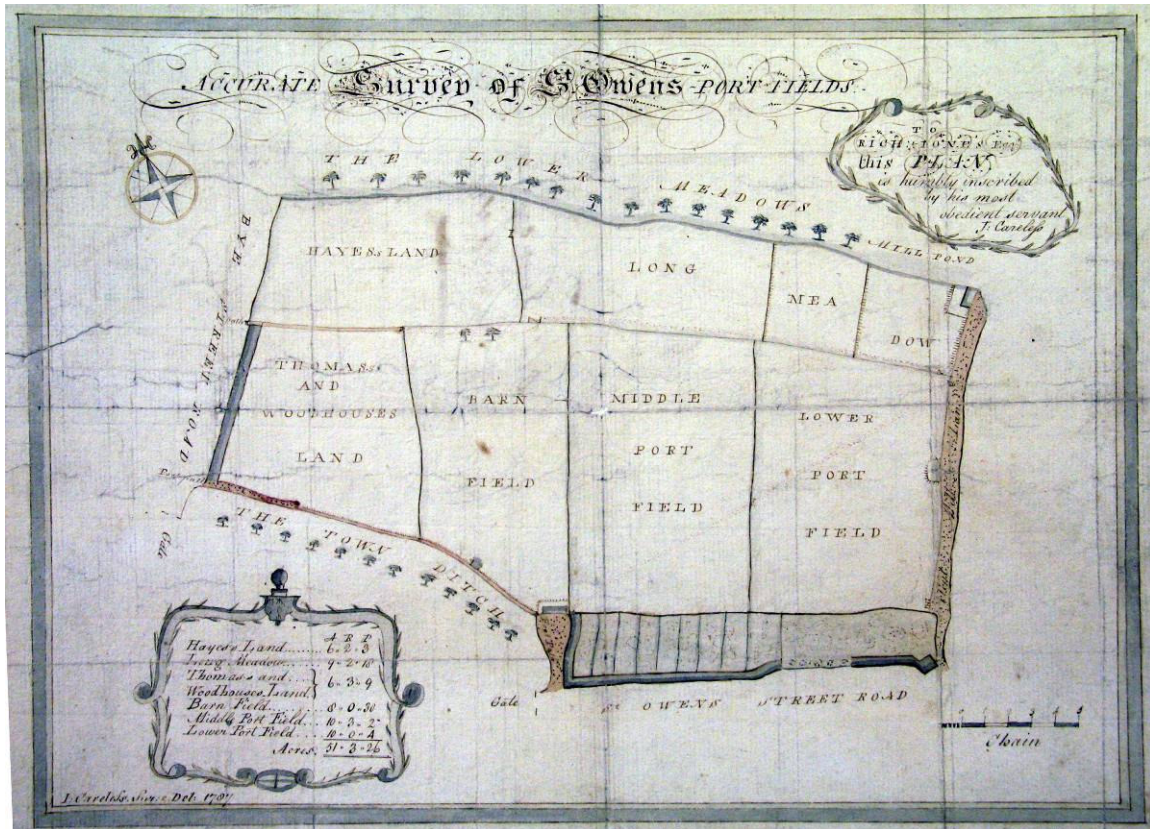 ACCURATE Survey of St. Owens PORT FIELDS.
TO
RICH: JONES Esqr
this PLAN
is humbly inscribed
by his most
obedient servant
J: Careless
THE LOWER MEADOWS
MILL POND
BYE STREET ROAD
HAYESs LAND
LONG
MEA
DOW
THOMASss
AND
WOODHOUSES
LAND
BARN
FIELD
MIDDLE
PORT
FIELD
LOWER
PORT
FIELD
Gate
THE TOWN DITCH
Gate
St OWENS STREET ROAD
Chain
A R P
Hayes's Land 6 - 2 - 3
Long Meadow 9 - 2 - 18
Thomas's and
Woodhouses Land } 6 - 3 - 9
Barn Field 8 - 0 - 30
Middle Port Field 10 - 3 - 2
Lower Port Field 10 - 0 - 4
Acres. 51 - 3 - 26